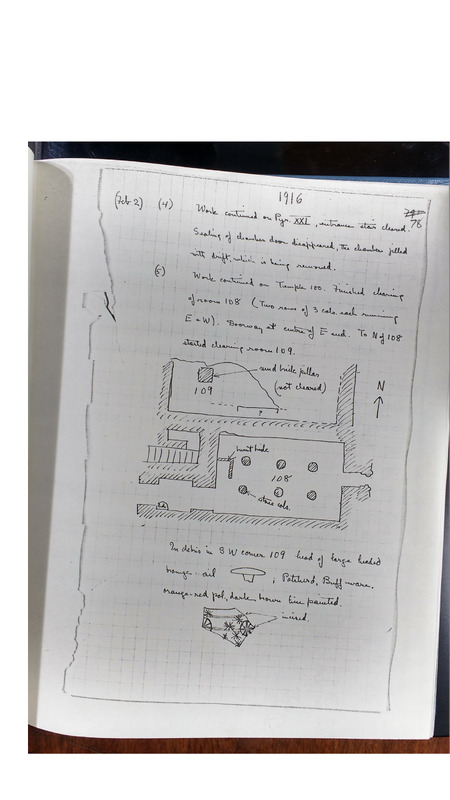 1916
78
(Feb 2) (4) Work continued on Pyr. XXI, entrance stair cleared.
Sealing of chamber door disappeared, the chamber filled
with drift, which is being removed.
(5) Work continued on Temple 100. Finished clearing
of room 108 (Two rows of 3 cols. each running
E-W). Doorway at centre of E end. To N of 108
started clearing room 109.
mud brick pillar
(not cleared)
109
?
N
burnt brick
108
stone cols.
In debris in SW corner 109 head of large headed
bronze nail ; Potsherd, Buff ware,
orange-red pol, darker brown line painted.
incised.